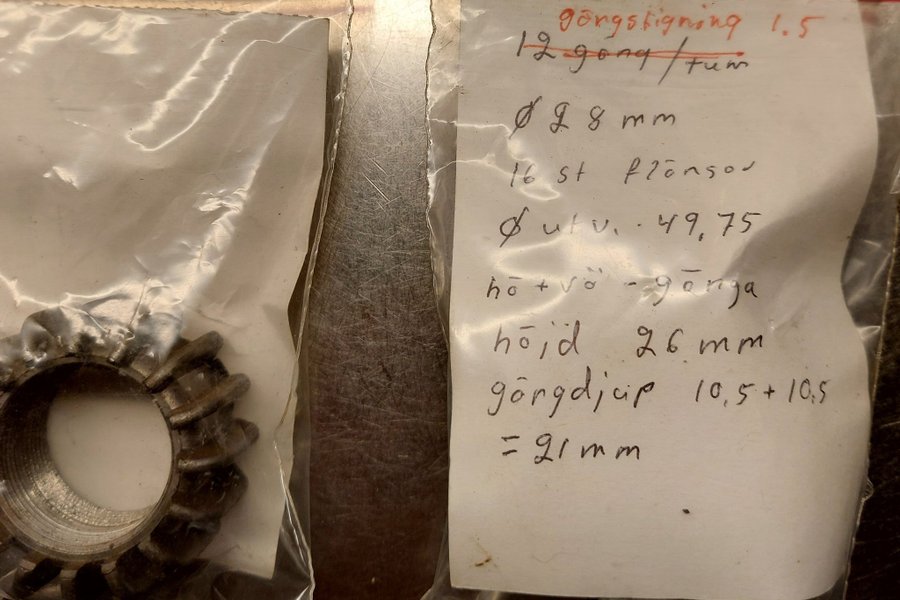 gängstigning 1.5
12 gäng/tum
Ø 28 mm
16 st flänsar
Ø utv. 49,75
hö + vä - gänga
höjd 26 mm
gängdjup 10,5 + 10,5
= 21 mm